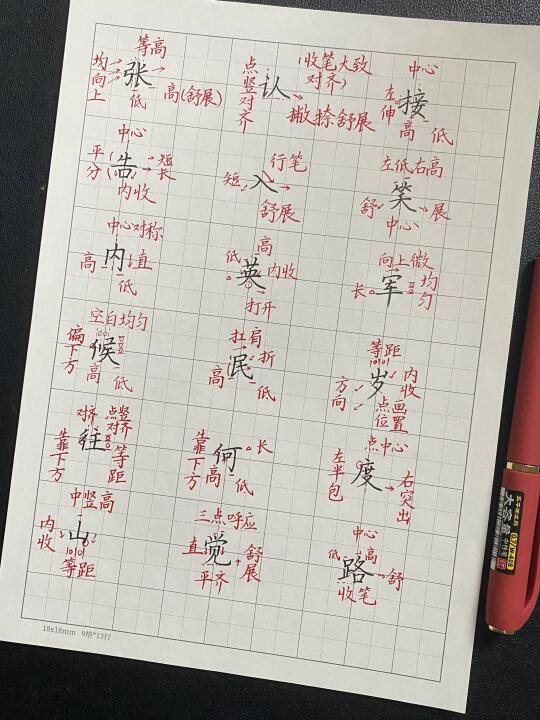 等高
均向上
张
低
高(舒展)
点竖对齐
(收笔大致
对齐)
认
撇捺舒展
中心
左伸
接
高
低
中心
平分
告
短
长
内收
行笔
短
入
舒展
左低右高
舒
笑
展
中心
中心对称
高
内
直
低
高
低
英
内收
打开
向上微
长
军
均匀
空白均匀
偏下方
候
高
低
扛肩
民
折
高
低
等距
方向
岁
内收
点画位置
对齐
点竖对齐
往
靠下方
等距
靠下方
何
长
高
低
点中心
左半包
度
右突出
中竖高
内收
山
等距
三点呼应
直
觉
舒展
平齐
中心
低
高
路
舒
收笔
18x18mm 9格*13行
大容量
中性笔